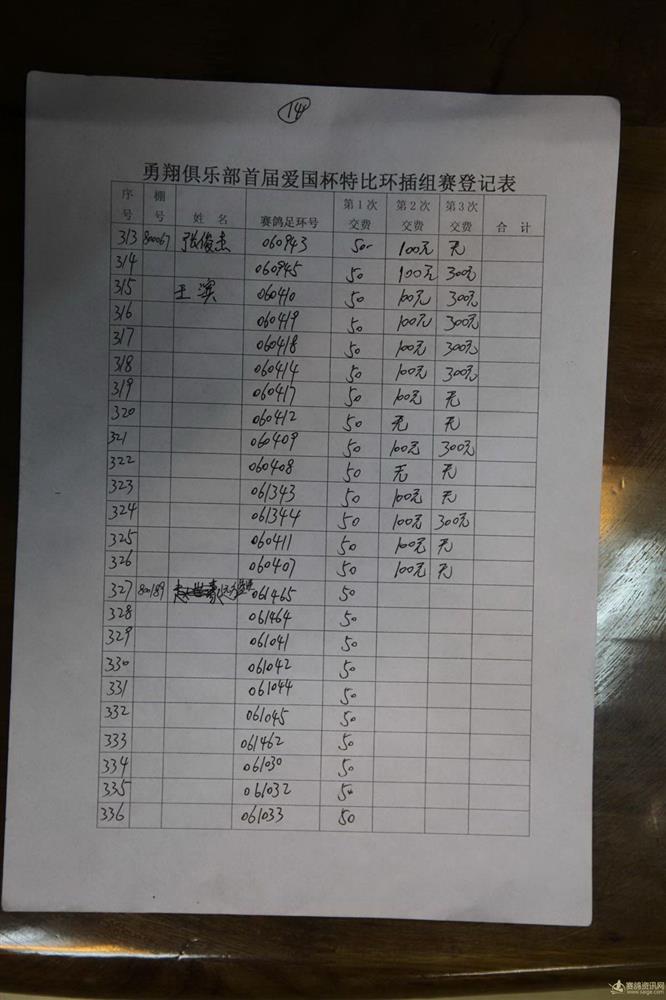 14
勇翔俱乐部首届爱国杯特比环插组赛登记表
序号 棚号 姓 名 赛鸽足环号 第1次交费 第2次交费 第3次交费 合 计
313 800067 张俊杰 060943 50 100元 无
314 060945 50 100元 300元
315 王滨 060410 50 100元 300元
316 060419 50 100元 300元
317 060418 50 100元 300元
318 060414 50 100元 300元
319 060417 50 100元 无
320 060412 50 无 无
321 060409 50 100元 300元
322 060408 50 无 无
323 061343 50 100元 无
324 061344 50 100元 300元
325 060411 50 100元 无
326 060407 50 100元 无
327 80189 061465 50
328 061464 50
329 061041 50
330 061042 50
331 061044 50
332 061045 50
333 061462 50
334 061030 50
335 061032 50
336 061033 50
赛鸽资讯网
www.saige.com